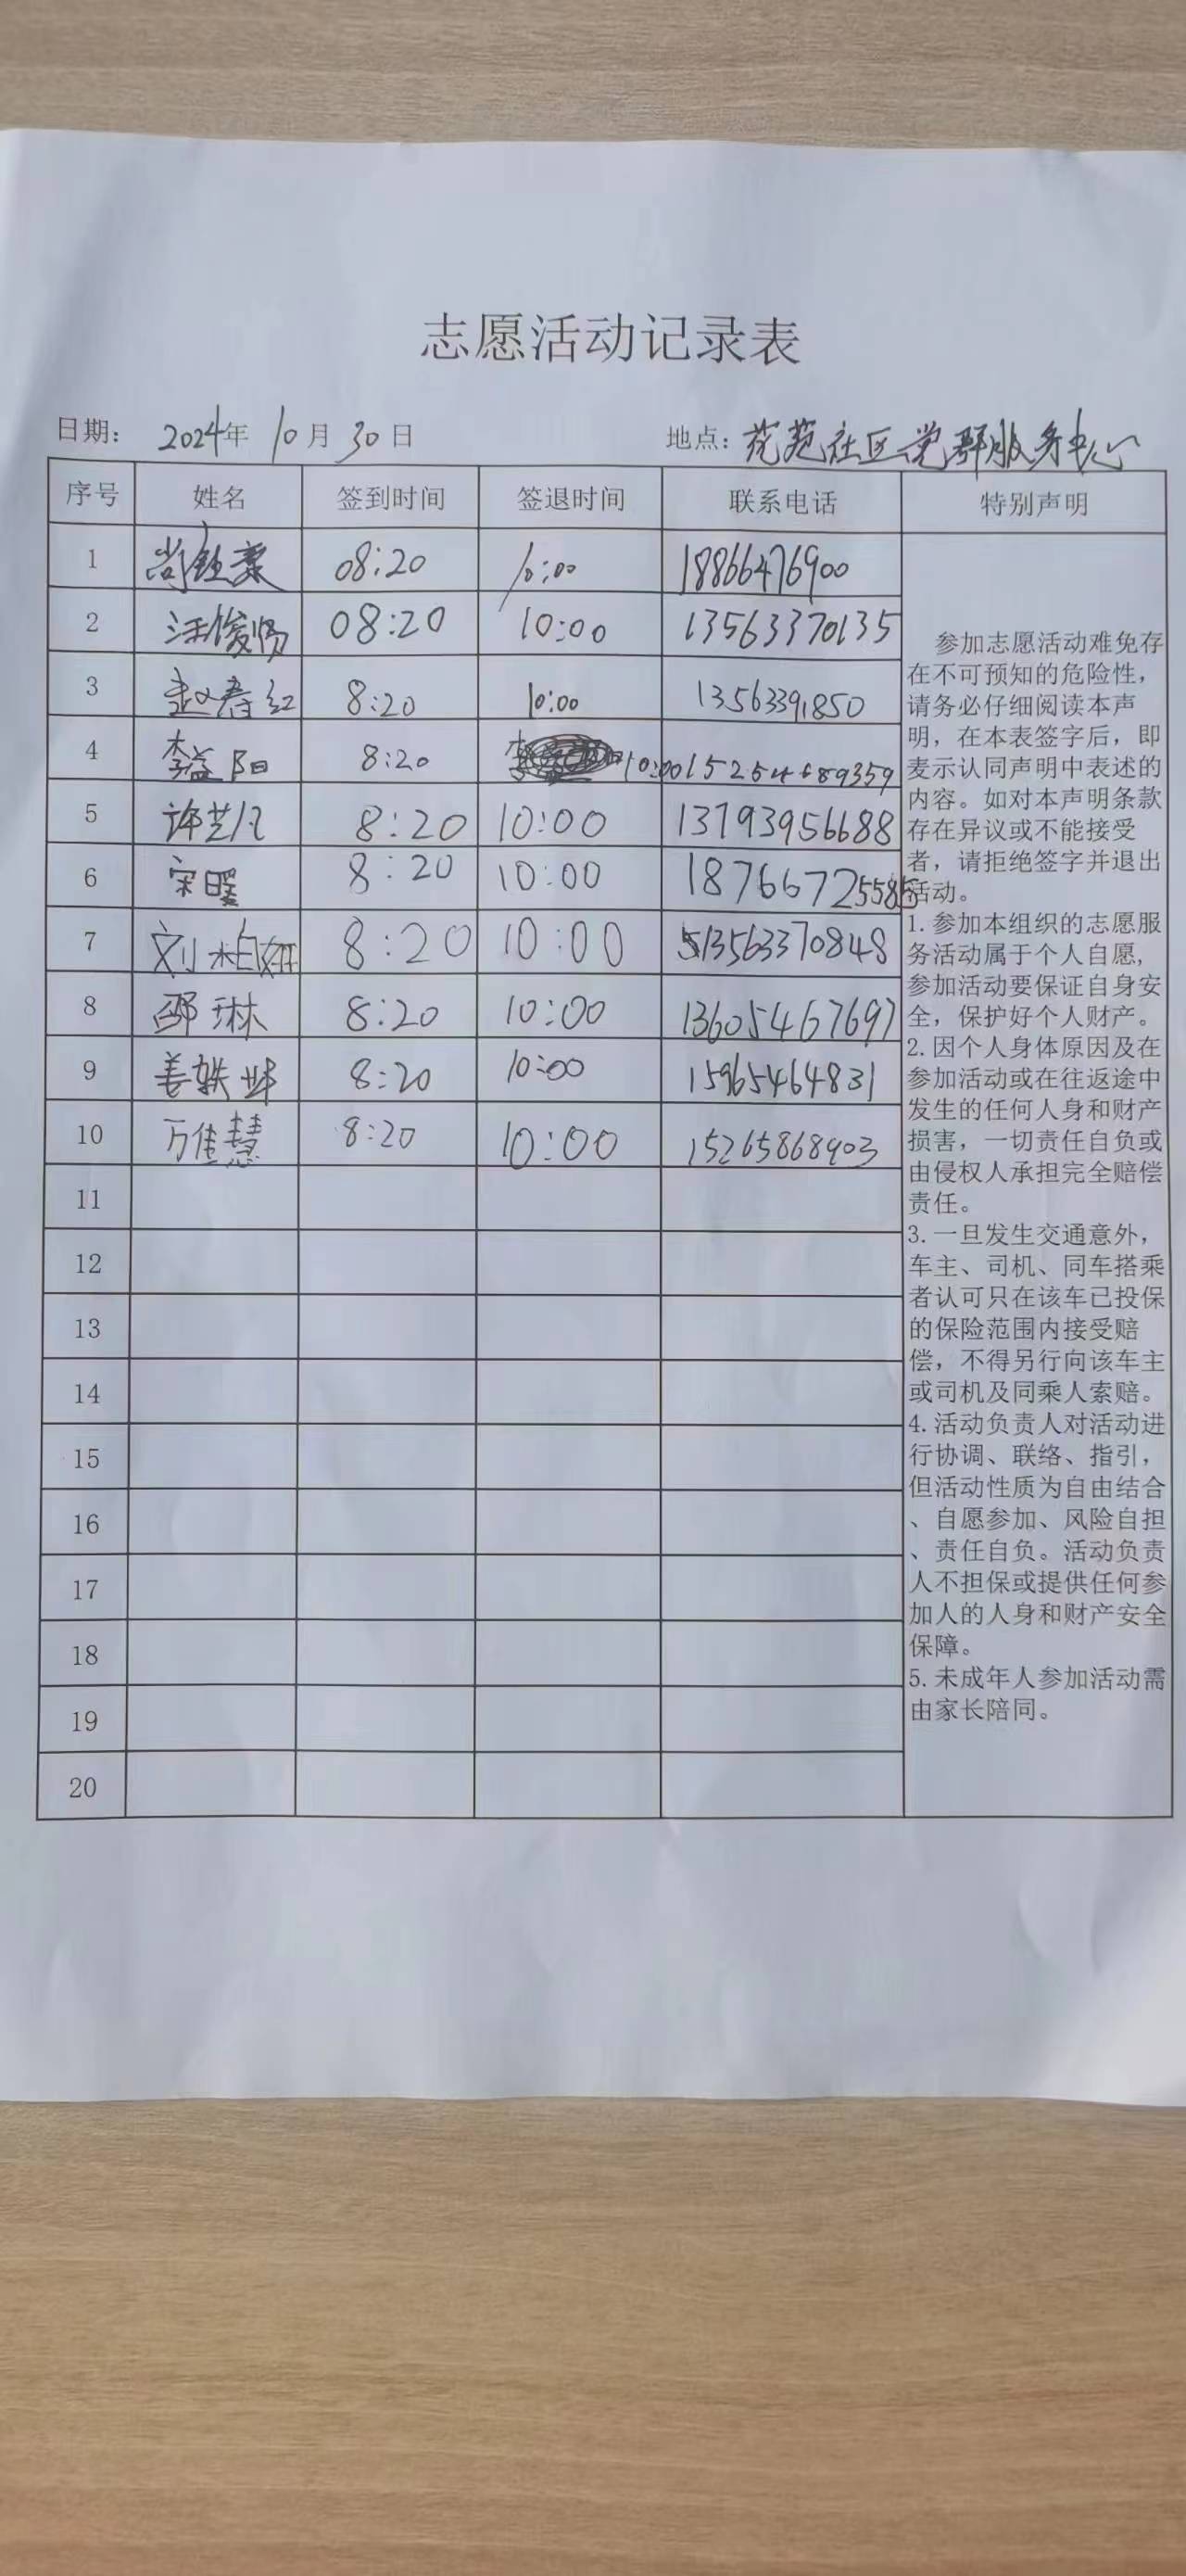 志愿活动记录表
日期： 2024年 10月 30日 地点：苑苑社区党群服务中心
序号 姓名 签到时间 签退时间 联系电话 特别声明
1 08:20 10:00 18866476900
2 汪俊贤 08:20 10:00 13563370135
3 赵春红 8:20 10:00 13563391850
4 李益阳 8:20 10:00 15254689359
5 许艺凡 8:20 10:00 13793956688
6 宋暖 8:20 10:00 18766725585
7 刘柏妍 8:20 10:00 13563370848
8 邵琳 8:20 10:00 13605467697
9 姜轶 8:20 10:00 15965464831
10 万佳慧 8:20 10:00 15265868903
11
12
13
14
15
16
17
18
19
20
参加志愿活动难免存
在不可预知的危险性，
请务必仔细阅读本声
明，在本表签字后，即
麦示认同声明中表述的
内容。如对本声明条款
存在异议或不能接受
者，请拒绝签字并退出
活动。
1.参加本组织的志愿服
务活动属于个人自愿，
参加活动要保证自身安
全，保护好个人财产。
2.因个人身体原因及在
参加活动或在往返途中
发生的任何人身和财产
损害，一切责任自负或
由侵权人承担完全赔偿
责任。
3.一旦发生交通意外，
车主、司机、同车搭乘
者认可只在该车已投保
的保险范围内接受赔
偿，不得另行向该车主
或司机及同乘人索赔。
4.活动负责人对活动进
行协调、联络、指引，
但活动性质为自由结合
、自愿参加、风险自担
、责任自负。活动负责
人不担保或提供任何参
加人的人身和财产安全
保障。
5.未成年人参加活动需
由家长陪同。